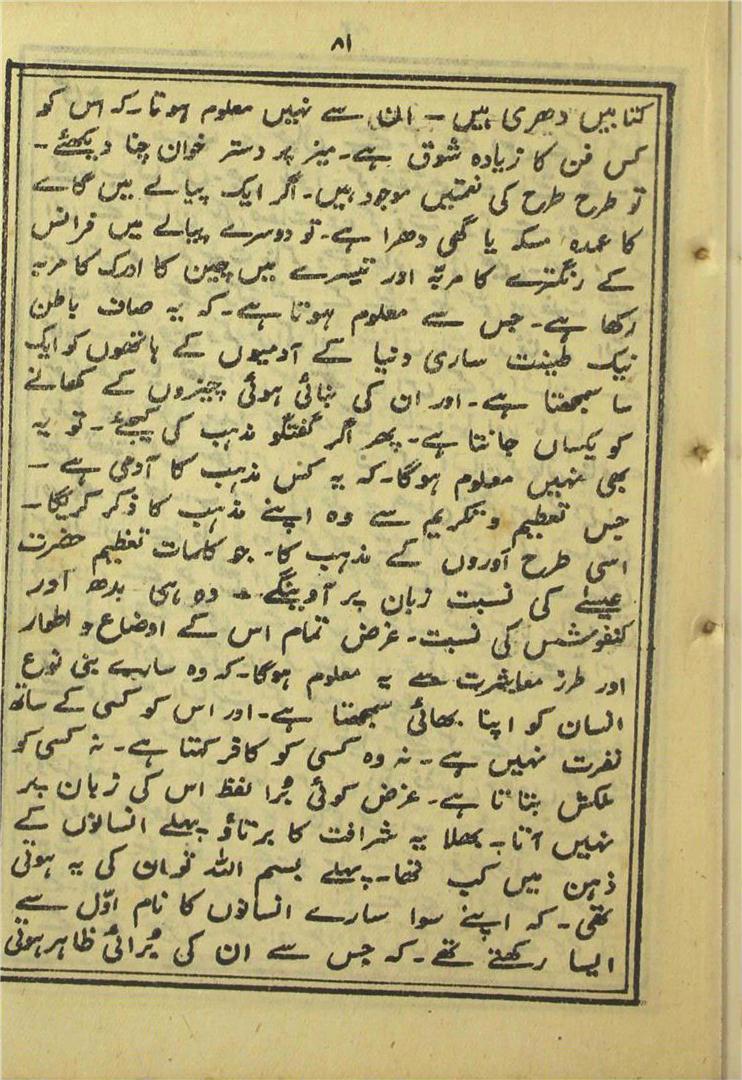 ۸۱
کتابیں دھری ہیں ۔ ان سے نہیں معلوم ہوتا۔ کہ اس کو
کس فن کا زیادہ شوق ہے۔ میز پر دستر خوان چنا دیکھئے۔
تو طرح طرح کی نعمتیں موجود ہیں۔ اگر ایک پیالے میں گاے
کا عمدہ مسکہ یا گھی دھرا ہے۔ تو دوسرے پیالے میں فرانس
کے رنگترے کا مربّہ اور تیسرے میں چین کا ادرک کا مربہ
رکھا ہے۔ جس سے معلوم ہوتا ہے۔ کہ یہ صاف باطن
نیک طینت ساری دنیا کے آدمیوں کے ہاتھوں کو ایک
سا سمجھتا ہے۔ اور ان کی بنائی ہوئی چیزوں کے کھانے
کو یکساں جانتا ہے۔ پھر اگر گفتگو مذہب کی کیجئے۔ تو یہ
بھی نہیں معلوم ہوگا۔ کہ یہ کس مذہب کا آدمی ہے ۔
جس تعظیم و تکریم سے وہ اپنے مذہب کا ذکر کریگا۔
اسی طرح اَوروں کے مذہب کا۔ جو کلمات تعظیم حضرت
عیسےٰ کی نسبت زبان پر آوینگے ۔ وہ ہی بدھ اور
کنفوشس کی نسبت۔ غرض تمام اس کے اوضاع و اطوار
اور طرز معاشرت سے یہ معلوم ہوگا۔ کہ وہ سارے بنی نوع
انسان کو اپنا بھائی سمجھتا ہے۔ اور اس کو کسی کے ساتھ
نفرت نہیں ہے۔ نہ وہ کسی کو کافر کہتا ہے۔ نہ کسی کو
ملکش بتاتا ہے۔ غرض کوئی بُرا لفظ اس کی زبان پر
نہیں آتا۔ بھلا یہ شرافت کا برتاؤ پہلے انسانوں کے
ذہن میں کب تھا۔ پہلے بسم اللہ تو ان کی یہ ہوتی
تھی۔ کہ اپنے سوا سارے انسانوں کا نام اوّل سے
ایسا رکھتے تھے۔ کہ جس سے ان کی بُرائی ظاہر ہوتی